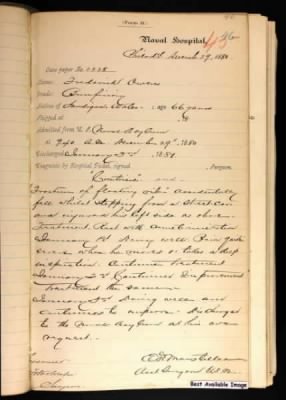 (Form 11.)
Naval Hospital,
Philad. December 29, 1880
Case paper No.
Name: Frederick Owens
Grade: Beneficiary
Native of Wales: age 66 years
Shipped at
Admitted from U. S. Naval Asylum
at 9:40 A.M. December 29th, 1880
Discharged January 3rd, 1881.
Diagnosis by Hospital Ticket, signed Surgeon.
"Contusio" and
Fracture of floating ribs accidentally
fell whilst stepping from a Street Car
and injured his left side as above.
Treatment Rest with
January 1st Doing well. Pain quite
when he moves or takes a deep
inspiration. Continue treatment.
January 2nd Continued Improvement
Treatment the same.
January 3rd Doing well and
continues to improve. Discharged
to the Naval Asylum at his own
request.
Asst Surgeon U.S.N.
Surgeon
Best Available Image